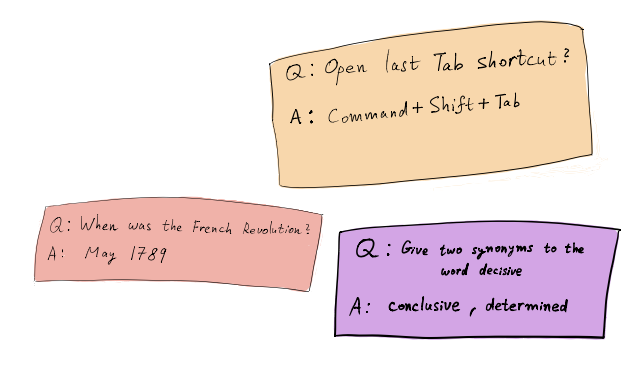 Q: Open last Tab shortcut?
A: Command + Shift + Tab
Q: When was the French Revolution?
A: May 1789
Q: Give two synonyms to the
word decisive
A: conclusive, determined